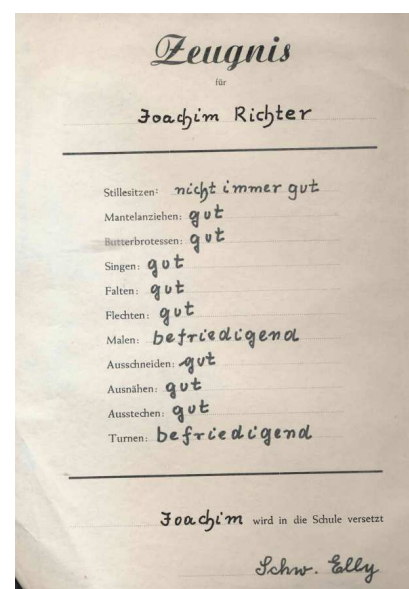 Zeugnis
für
Joachim Richter
Stillesitzen: nicht immer gut
Mantelanziehen: gut
Butterbrotessen: gut
Singen: gut
Falten: gut
Flechten: gut
Malen: befriedigend
Ausschneiden: gut
Ausnähen: gut
Ausstechen: gut
Turnen: befriedigend
Joachim wird in die Schule versetzt
Schw. Elly